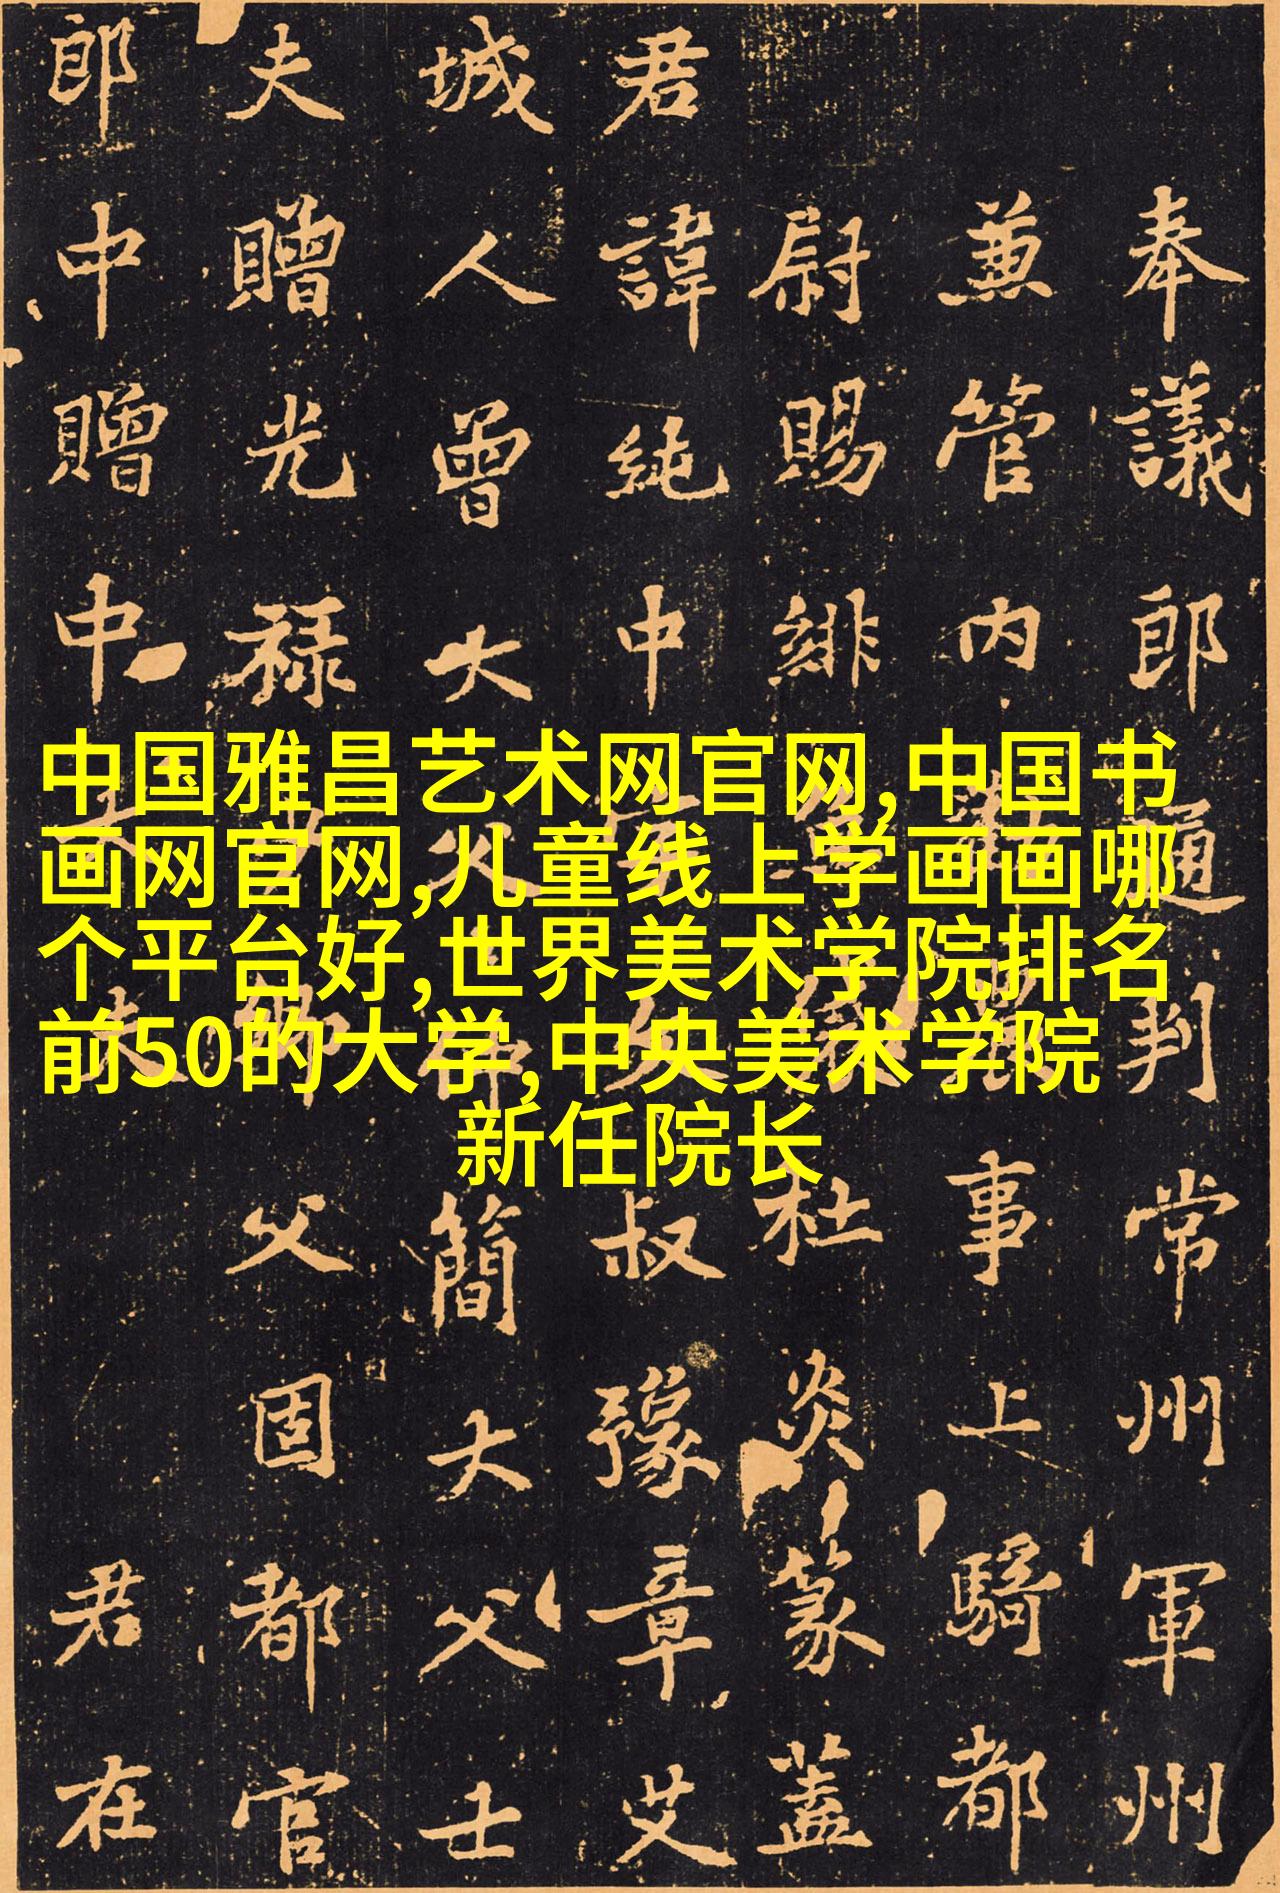 中国雅昌艺术网官网,中国书
画网官网,儿童线上学画画哪
个平台好,世界美术学院排名
前50的大学,中央美术学院
新任院长
奉議郎通判常州軍州
兼管內事上騎都
尉賜緋杜炎篆蓋
君諱純中叔豫章艾
城人曾大父簡大父士
夫贈光祿父固都官
郎中贈中大夫君在